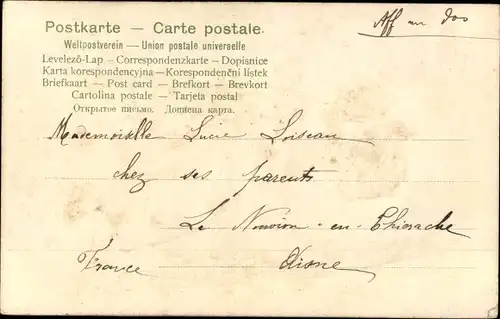 Aff au dos
Postkarte — Carte postale.
Weltpostverein — Union postale universelle
Levelező-Lap — Correspondenzkarte — Dopisnice
Karta korespondencyjna — Korespondenční lístek
Briefkaart — Post card — Brefkort — Brevkort
Cartolina postale — Tarjeta postal
Открытое письмо. Дописна карта.
Mademoiselle Lucie Loiseau
chez ses parents
Le Nouvion-en-Thiérache
France Aisne